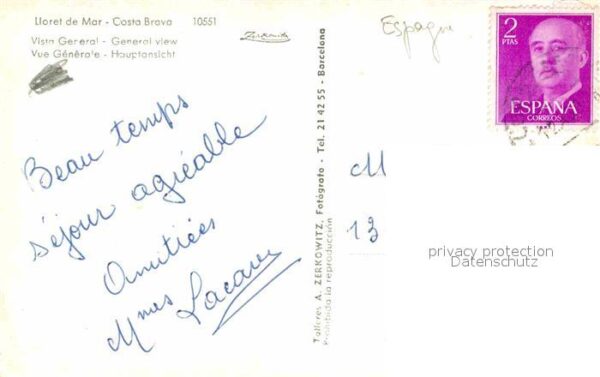 Lloret de Mar - Costa Brava 10551
Vista General - General view
Vue Générale - Hauptansicht
Zerkowitz
Espagne
2
PTAS
ESPAÑA
CORREOS
Beau temps
séjour agréable
Amitiées
Mmes Lacaux
Talleres A. ZERKOWITZ, Fotógrafo - Tel. 21 42 55 - Barcelona
Prohibida la reproducción
M
13
privacy protection
Datenschutz